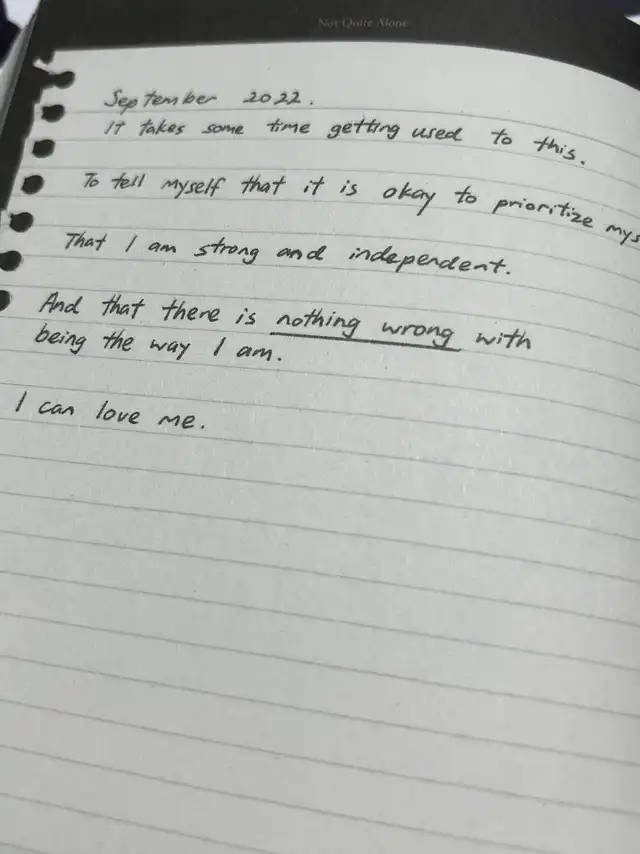 Not Quite Alone
September 2022.
It takes some time getting used to this.
To tell myself that it is okay to prioritize mys
That I am strong and independent.
And that there is nothing wrong with
being the way I am.
I can love me.